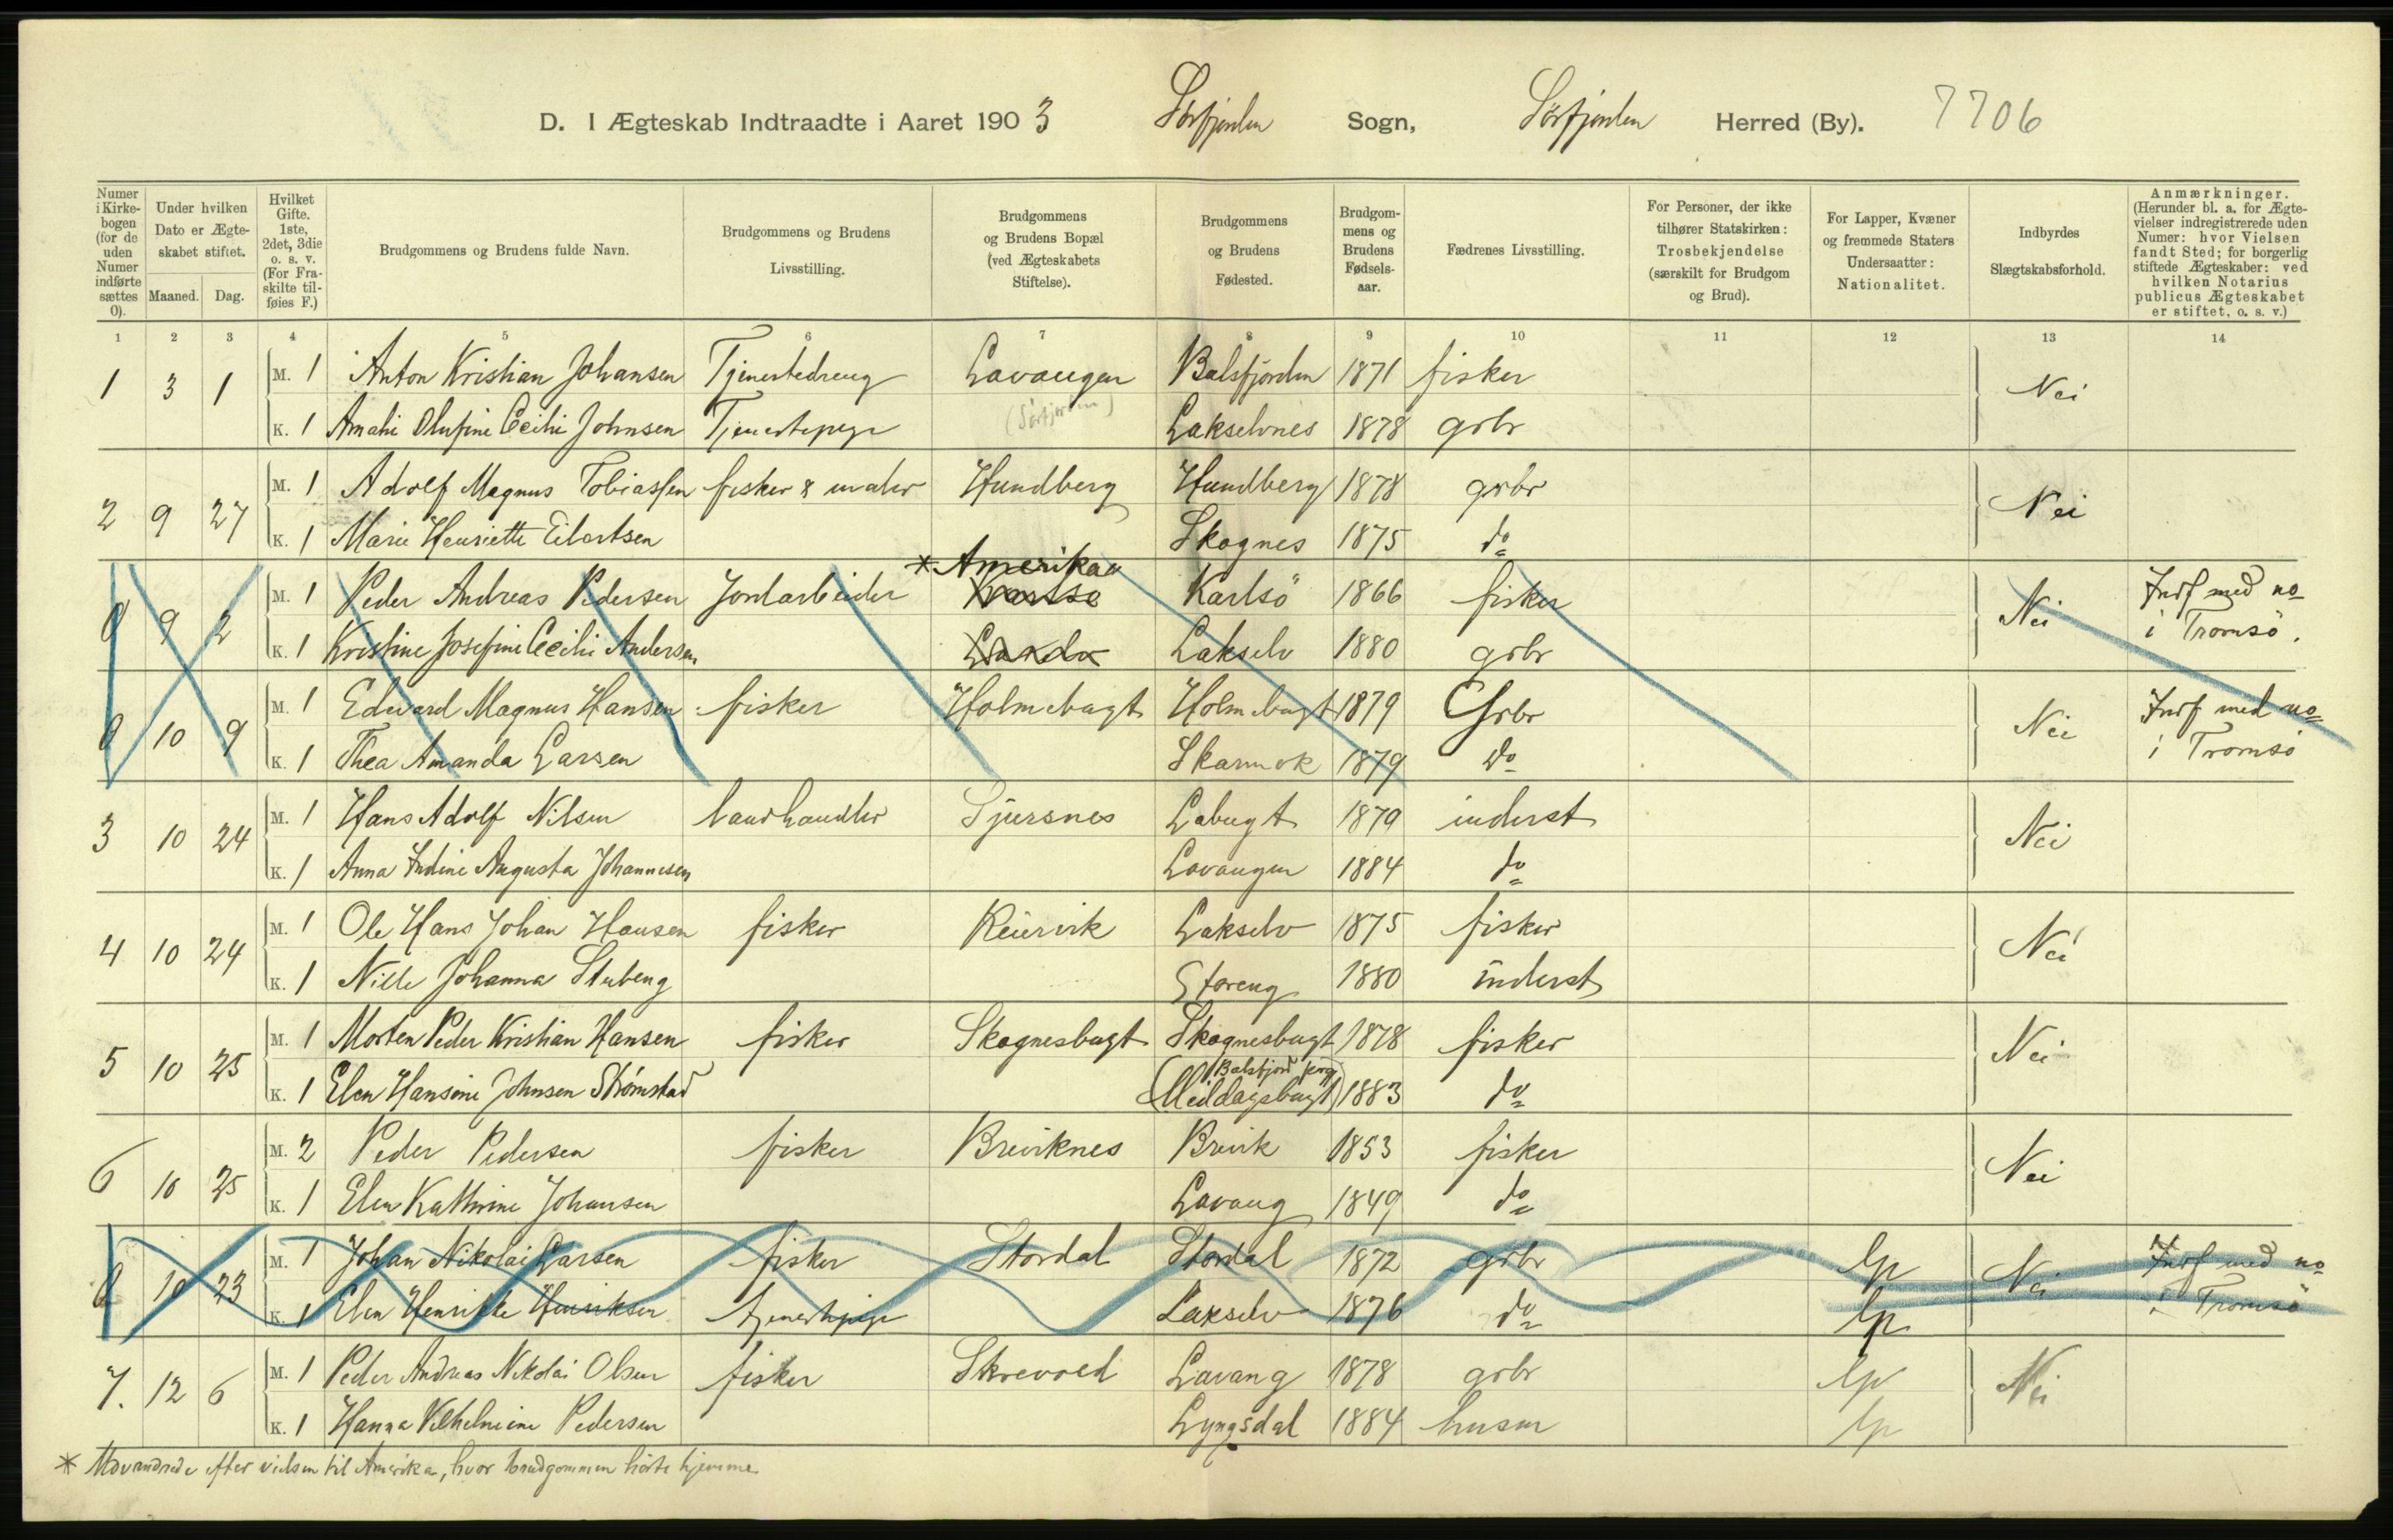 D. I Ægteskab Indtraadte i Aaret 1903 Sørfjorden Sogn, Sørfjorden Herred (By). 7706
Numer i Kirkebogen (for de uden Numer indførte sættes 0).
Under hvilken Dato er Ægteskabet stiftet.
Maaned. Dag.
Hvilket Gifte. 1ste, 2det, 3die o. s. v. (For Fraskilte tilføies F.)
Brudgommens og Brudens fulde Navn.
Brudgommens og Brudens Livsstilling.
Brudgommens og Brudens Bopæl (ved Ægteskabets Stiftelse).
Brudgommens og Brudens Fødested.
Brudgommens og Brudens Fødselsaar.
Fædrenes Livsstilling.
For Personer, der ikke tilhører Statskirken: Trosbekjendelse (særskilt for Brudgom og Brud).
For Lapper, Kvæner og fremmede Staters Undersaatter: Nationalitet.
Indbyrdes Slægtskabsforhold.
Anmærkninger. (Herunder bl. a. for Ægtevielser indregistrerede uden Numer: hvor Vielsen fandt Sted; for borgerlig stiftede Ægteskaber: ved hvilken Notarius publicus Ægteskabet er stiftet, o. s. v.)
1 2 3 4 5 6 7 8 9 10 11 12 13 14
1 3 1 M. 1 Anton Kristian Johansen Tjenestedreng Lavangen Balsfjorden 1871 fisker Nei
K. 1 Amalie Olufine Cecilie Johnsen Tjenestepige (Sørfjorden) Lakselvnes 1878 grbr
2 9 27 M. 1 Adolf Magnus Tobiassen fisker & maler Hundberg Hundberg 1878 grbr Nei
K. 1 Marie Henriette Eilertsen Skognes 1875 do
0 9 2 M. 1 Peder Andreas Pedersen Jordarbeider * Amerika Karlsö Karlsö 1866 fisker Nei Indf med no
K. 1 Kristine Josefine Cecilie Andersen Lakselv 1880 grbr i Tromsö.
0 10 9 M. 1 Edvard Magnus Hansen fisker Holmebugt Holmebugt 1879 Grbr Nei Indf med no
K. 1 Thea Amanda Larsen Skarmok 1879 Do i Tromsö
3 10 24 M. 1 Hans Adolf Nilsen landhandler Sjursnes Labugt 1879 inderst Nei
K. 1 Anna Indine Augusta Johannesen Lavangen 1884 do
4 10 24 M. 1 Ole Hans Johan Hansen fisker Reiervik Lakselv 1875 fisker Nei
K. 1 Nille Johanna Stubeng Storeng 1880 inderst
5 10 25 M. 1 Morten Peder Kristian Hansen fisker Skognesbugt Skognesbugt 1878 fisker Nei
K. 1 Elen Hansine Johnsen Strömstad (Balsfjord prg Middagsbugt) 1883 do
6 10 25 M. 2 Peder Pedersen fisker Breiviknes Breivik 1853 fisker Nei
K. 1 Elen Kathrine Johansen Lavang 1849 do
0 10 23 M. 1 Johan Nikolai Larsen fisker Stordal Stordal 1872 grbr lp Nei Indf med no
K. 1 Elen Henrikke Henriksen tjenestepige Lakselv 1876 do lp i Tromsö
7. 12 6 M. 1 Peder Andreas Nikolai Olsen fisker Skrevold Lavang 1878 grbr lp Nei
K. 1 Hanna Vilhelmine Pedersen Lyngsdal 1884 husm lp
* Udvandrede efter vielsen til Amerika, hvor brudgommen hörte hjemme